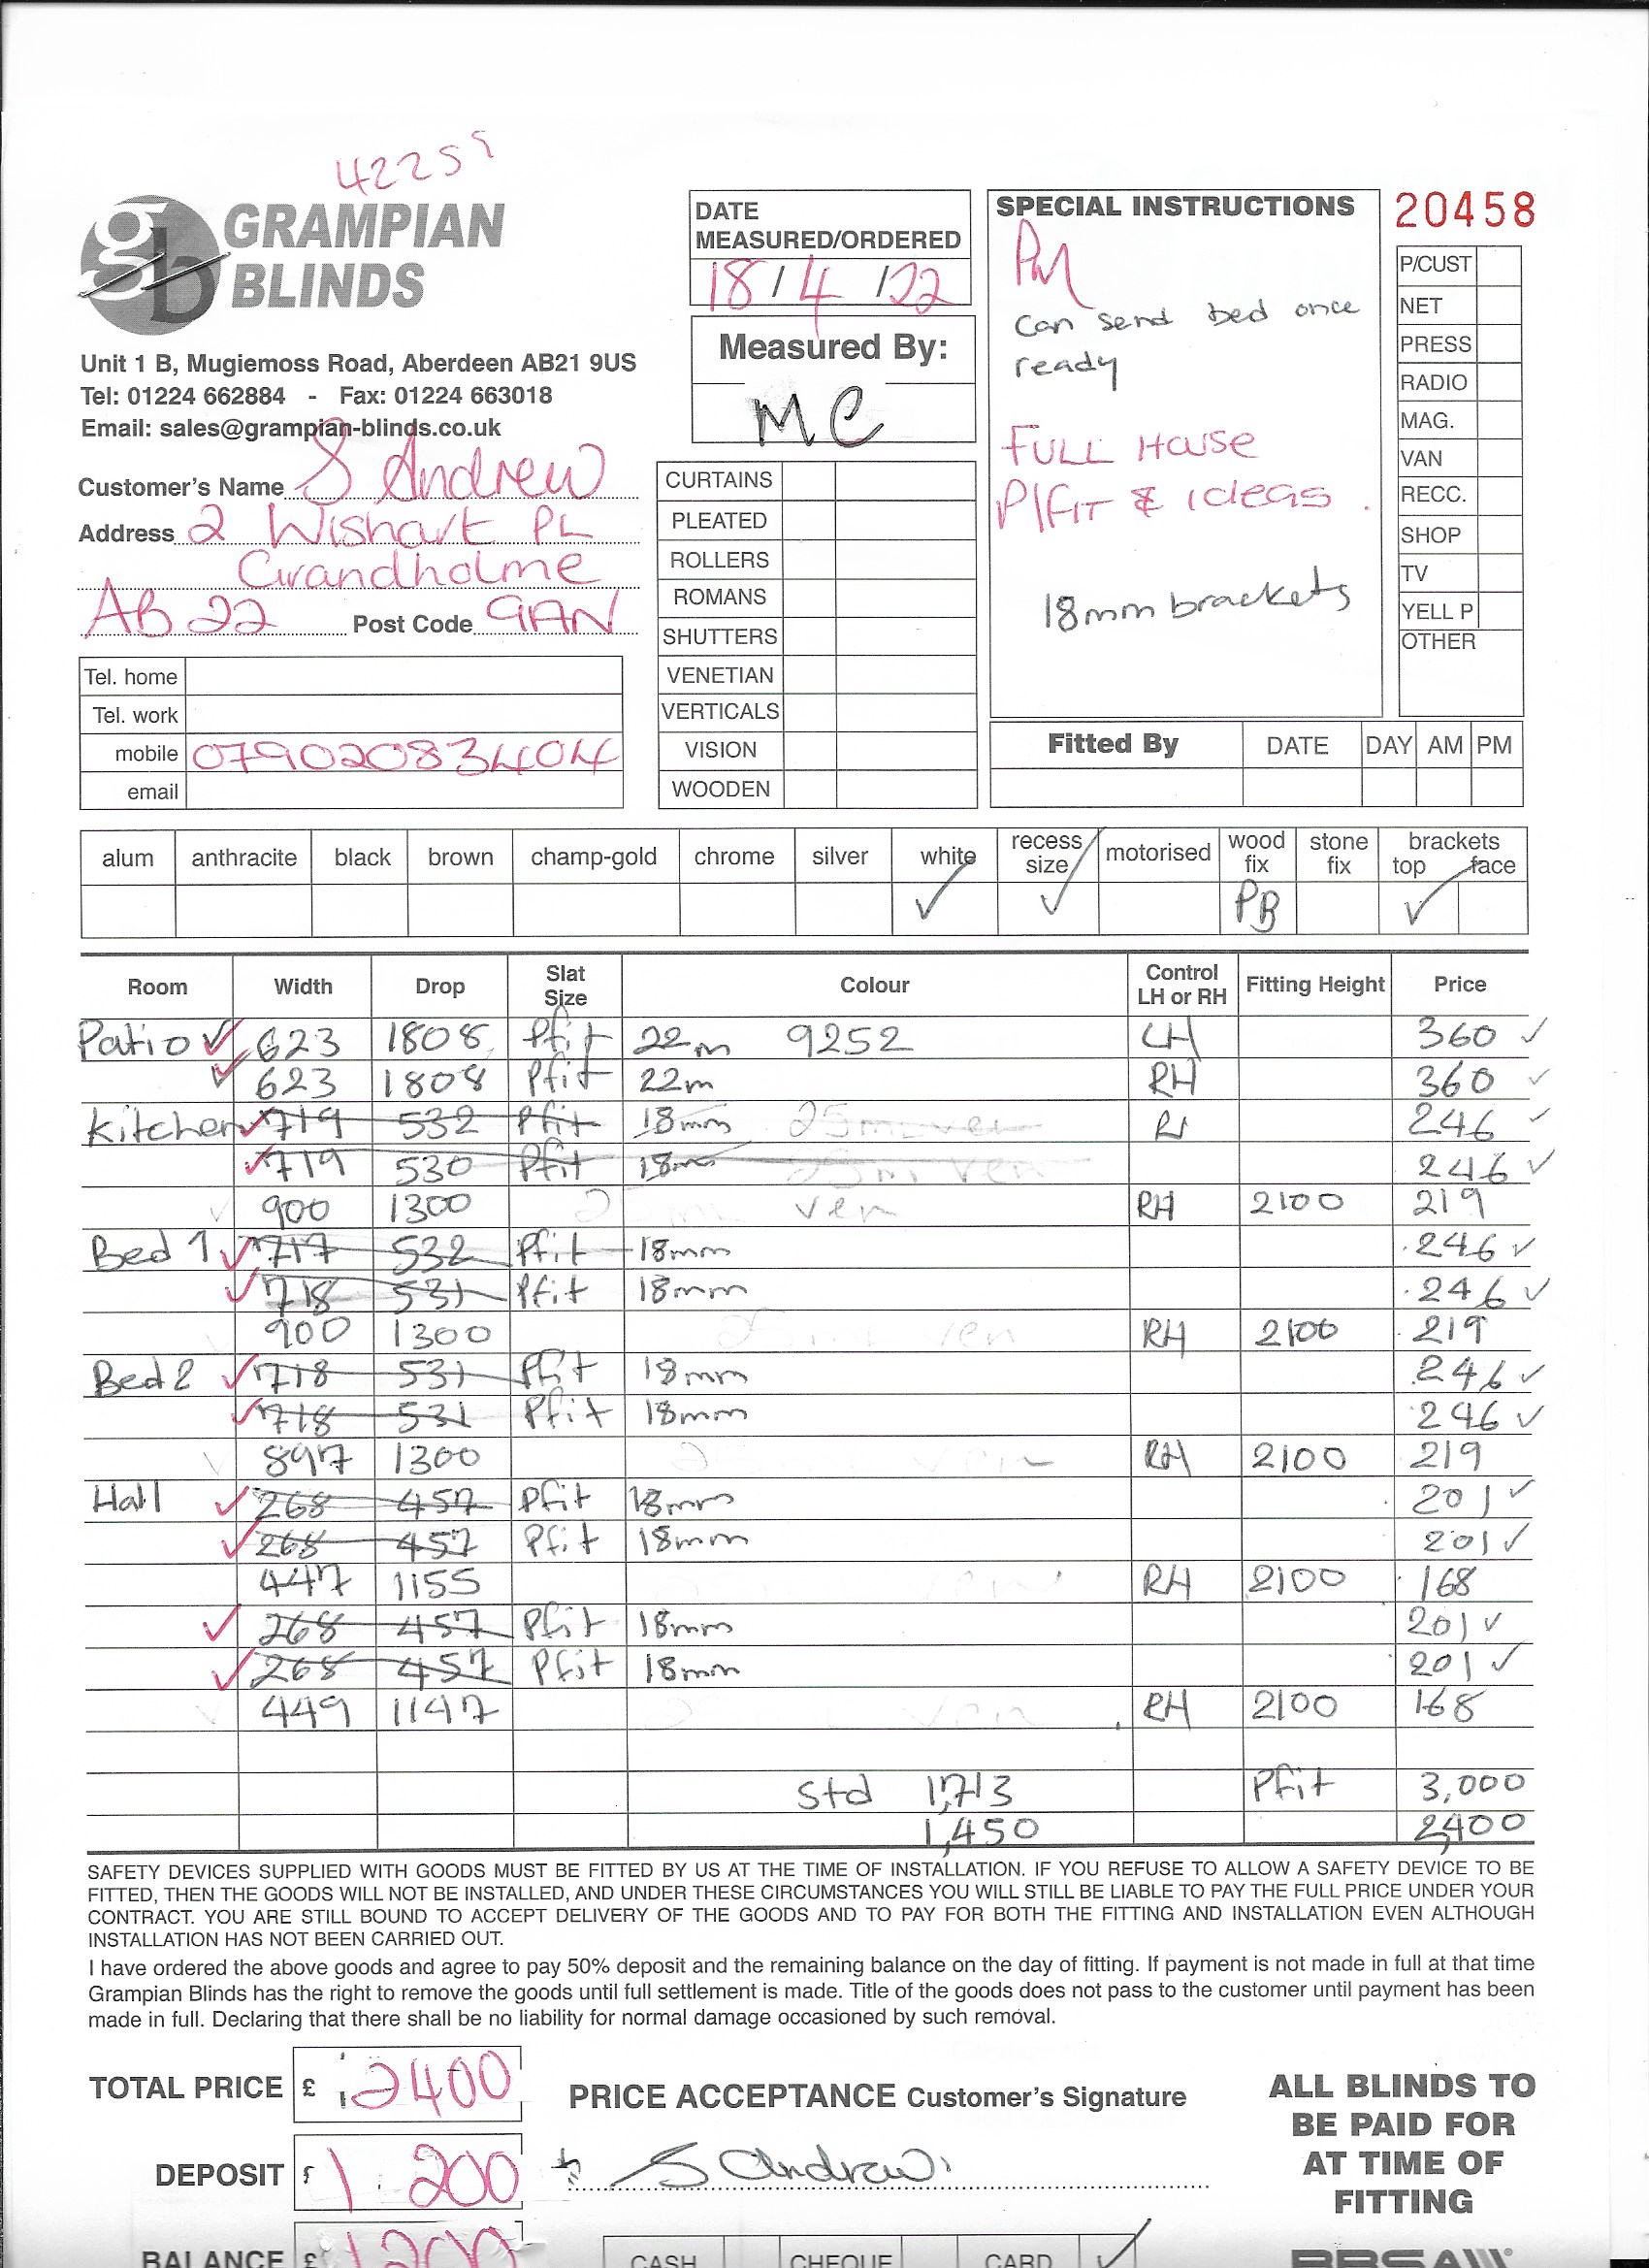 42259
GRAMPIAN
BLINDS
Unit 1 B, Mugiemoss Road, Aberdeen AB21 9US
Tel: 01224 662884 - Fax: 01224 663018
Email: sales@grampian-blinds.co.uk
Customer's Name S Andrew
Address 2 Wishart PL
Grandholme
AB22 Post Code 9AN
Tel. home
Tel. work
mobile 07902083404
email
DATE
MEASURED/ORDERED
18/4/22
Measured By:
MC
CURTAINS
PLEATED
ROLLERS
ROMANS
SHUTTERS
VENETIAN
VERTICALS
VISION
WOODEN
SPECIAL INSTRUCTIONS
PM
Can send bed once
ready
FULL House
P/FIT & ideas.
18mm brackets
20458
P/CUST
NET
PRESS
RADIO
MAG.
VAN
RECC.
SHOP
TV
YELL P
OTHER
Fitted By DATE DAY AM PM
alum anthracite black brown champ-gold chrome silver white recess size motorised wood fix stone fix brackets top face
✓ ✓ PB ✓
Room Width Drop Slat Size Colour Control LH or RH Fitting Height Price
Patio ✓ 623 1808 Pfit 22m 9252 LH 360 ✓
✓ 623 1808 Pfit 22m RH 360 ✓
Kitchen ✓ 719 532 Pfit 18mm 25m ven 246 ✓
✓ 719 530 Pfit 18m ven 246 ✓
900 1300 ven RH 2100 219
Bed 1 ✓ 717 532 Pfit 18mm 246 ✓
✓ 718 531 Pfit 18mm 246 ✓
900 1300 ven RH 2100 219
Bed 2 ✓ 718 531 Pfit 18mm 246 ✓
✓ 718 531 Pfit 18mm 246 ✓
897 1300 RH 2100 219
Hall ✓ 268 457 Pfit 18mm 201 ✓
✓ 268 457 Pfit 18mm 201 ✓
447 1155 ven RH 2100 168
✓ 268 457 Pfit 18mm 201 ✓
✓ 268 457 Pfit 18mm 201 ✓
449 1147 ven RH 2100 168
Std 1,713 Pfit 3,000
1,450 2400
SAFETY DEVICES SUPPLIED WITH GOODS MUST BE FITTED BY US AT THE TIME OF INSTALLATION. IF YOU REFUSE TO ALLOW A SAFETY DEVICE TO BE
FITTED, THEN THE GOODS WILL NOT BE INSTALLED, AND UNDER THESE CIRCUMSTANCES YOU WILL STILL BE LIABLE TO PAY THE FULL PRICE UNDER YOUR
CONTRACT. YOU ARE STILL BOUND TO ACCEPT DELIVERY OF THE GOODS AND TO PAY FOR BOTH THE FITTING AND INSTALLATION EVEN ALTHOUGH
INSTALLATION HAS NOT BEEN CARRIED OUT.
I have ordered the above goods and agree to pay 50% deposit and the remaining balance on the day of fitting. If payment is not made in full at that time
Grampian Blinds has the right to remove the goods until full settlement is made. Title of the goods does not pass to the customer until payment has been
made in full. Declaring that there shall be no liability for normal damage occasioned by such removal.
TOTAL PRICE £ 2400
DEPOSIT £ 1200
BALANCE £ 1200
PRICE ACCEPTANCE Customer's Signature
S Andrew
CASH CHEQUE CARD ✓
ALL BLINDS TO
BE PAID FOR
AT TIME OF
FITTING
BBSA